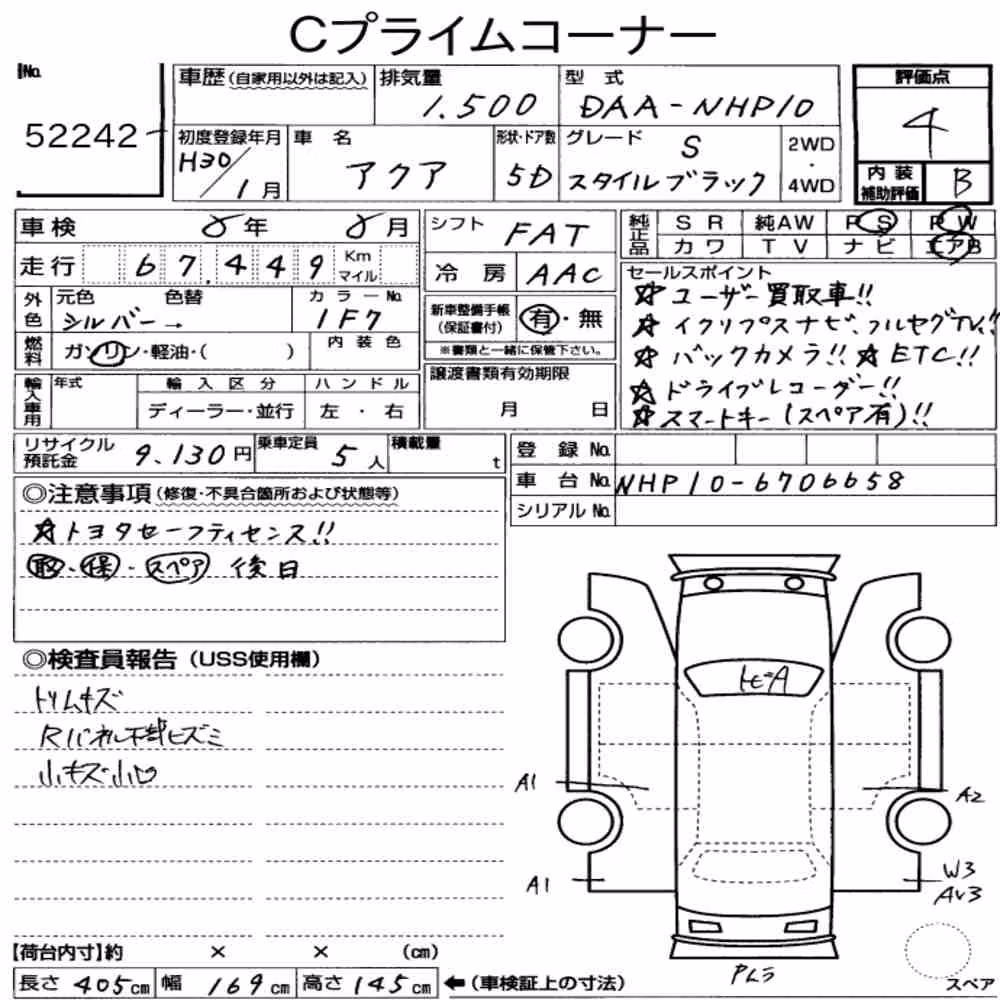 Cプライムコーナー
No.
52242
車歴(自家用以外は記入)
排気量
1.500
型式
DAA-NHP10
評価点
4
初度登録年月
H30/1月
車名
アクア
形状・ドア数
5D
グレード
S
スタイルブラック
2WD
・
4WD
内装
補助評価
B
車検
年
月
シフト
FAT
純正品
SR
純AW
PS
PW
カワ
TV
ナビ
エアB
走行
67,449
Km
マイル
冷房
AAC
セールスポイント
☆ユーザー買取車!!
☆イクリプスナビ、フルセグTV!!
☆バックカメラ!! ☆ETC!!
☆ドライブレコーダー!!
☆スマートキー(スペア有)!!
外色
元色
色替
シルバー→
カラーNo.
1F7
新車整備手帳
(保証書付)
有・無
※書類と一緒に保管下さい。
燃料
ガソリン・軽油・( )
内装色
輸入車用
年式
輸入区分
ディーラー・並行
ハンドル
左・右
譲渡書類有効期限
月 日
リサイクル
預託金
9.130円
乗車定員
5人
積載量
t
登録No.
車台No.
NHP10-6706658
シリアルNo.
◎注意事項(修復・不具合箇所および状態等)
☆トヨタセーフティセンス!!
取・保・スペア 後日
◎検査員報告(USS使用欄)
トリムキズ
Rパネル下部ヒズミ
小キズ小凹
トビA
A1
A2
A1
W3
AW3
Pムラ
スペア
【荷台内寸】約 × × (cm)
長さ 405cm 幅 169cm 高さ 145cm ←(車検証上の寸法)